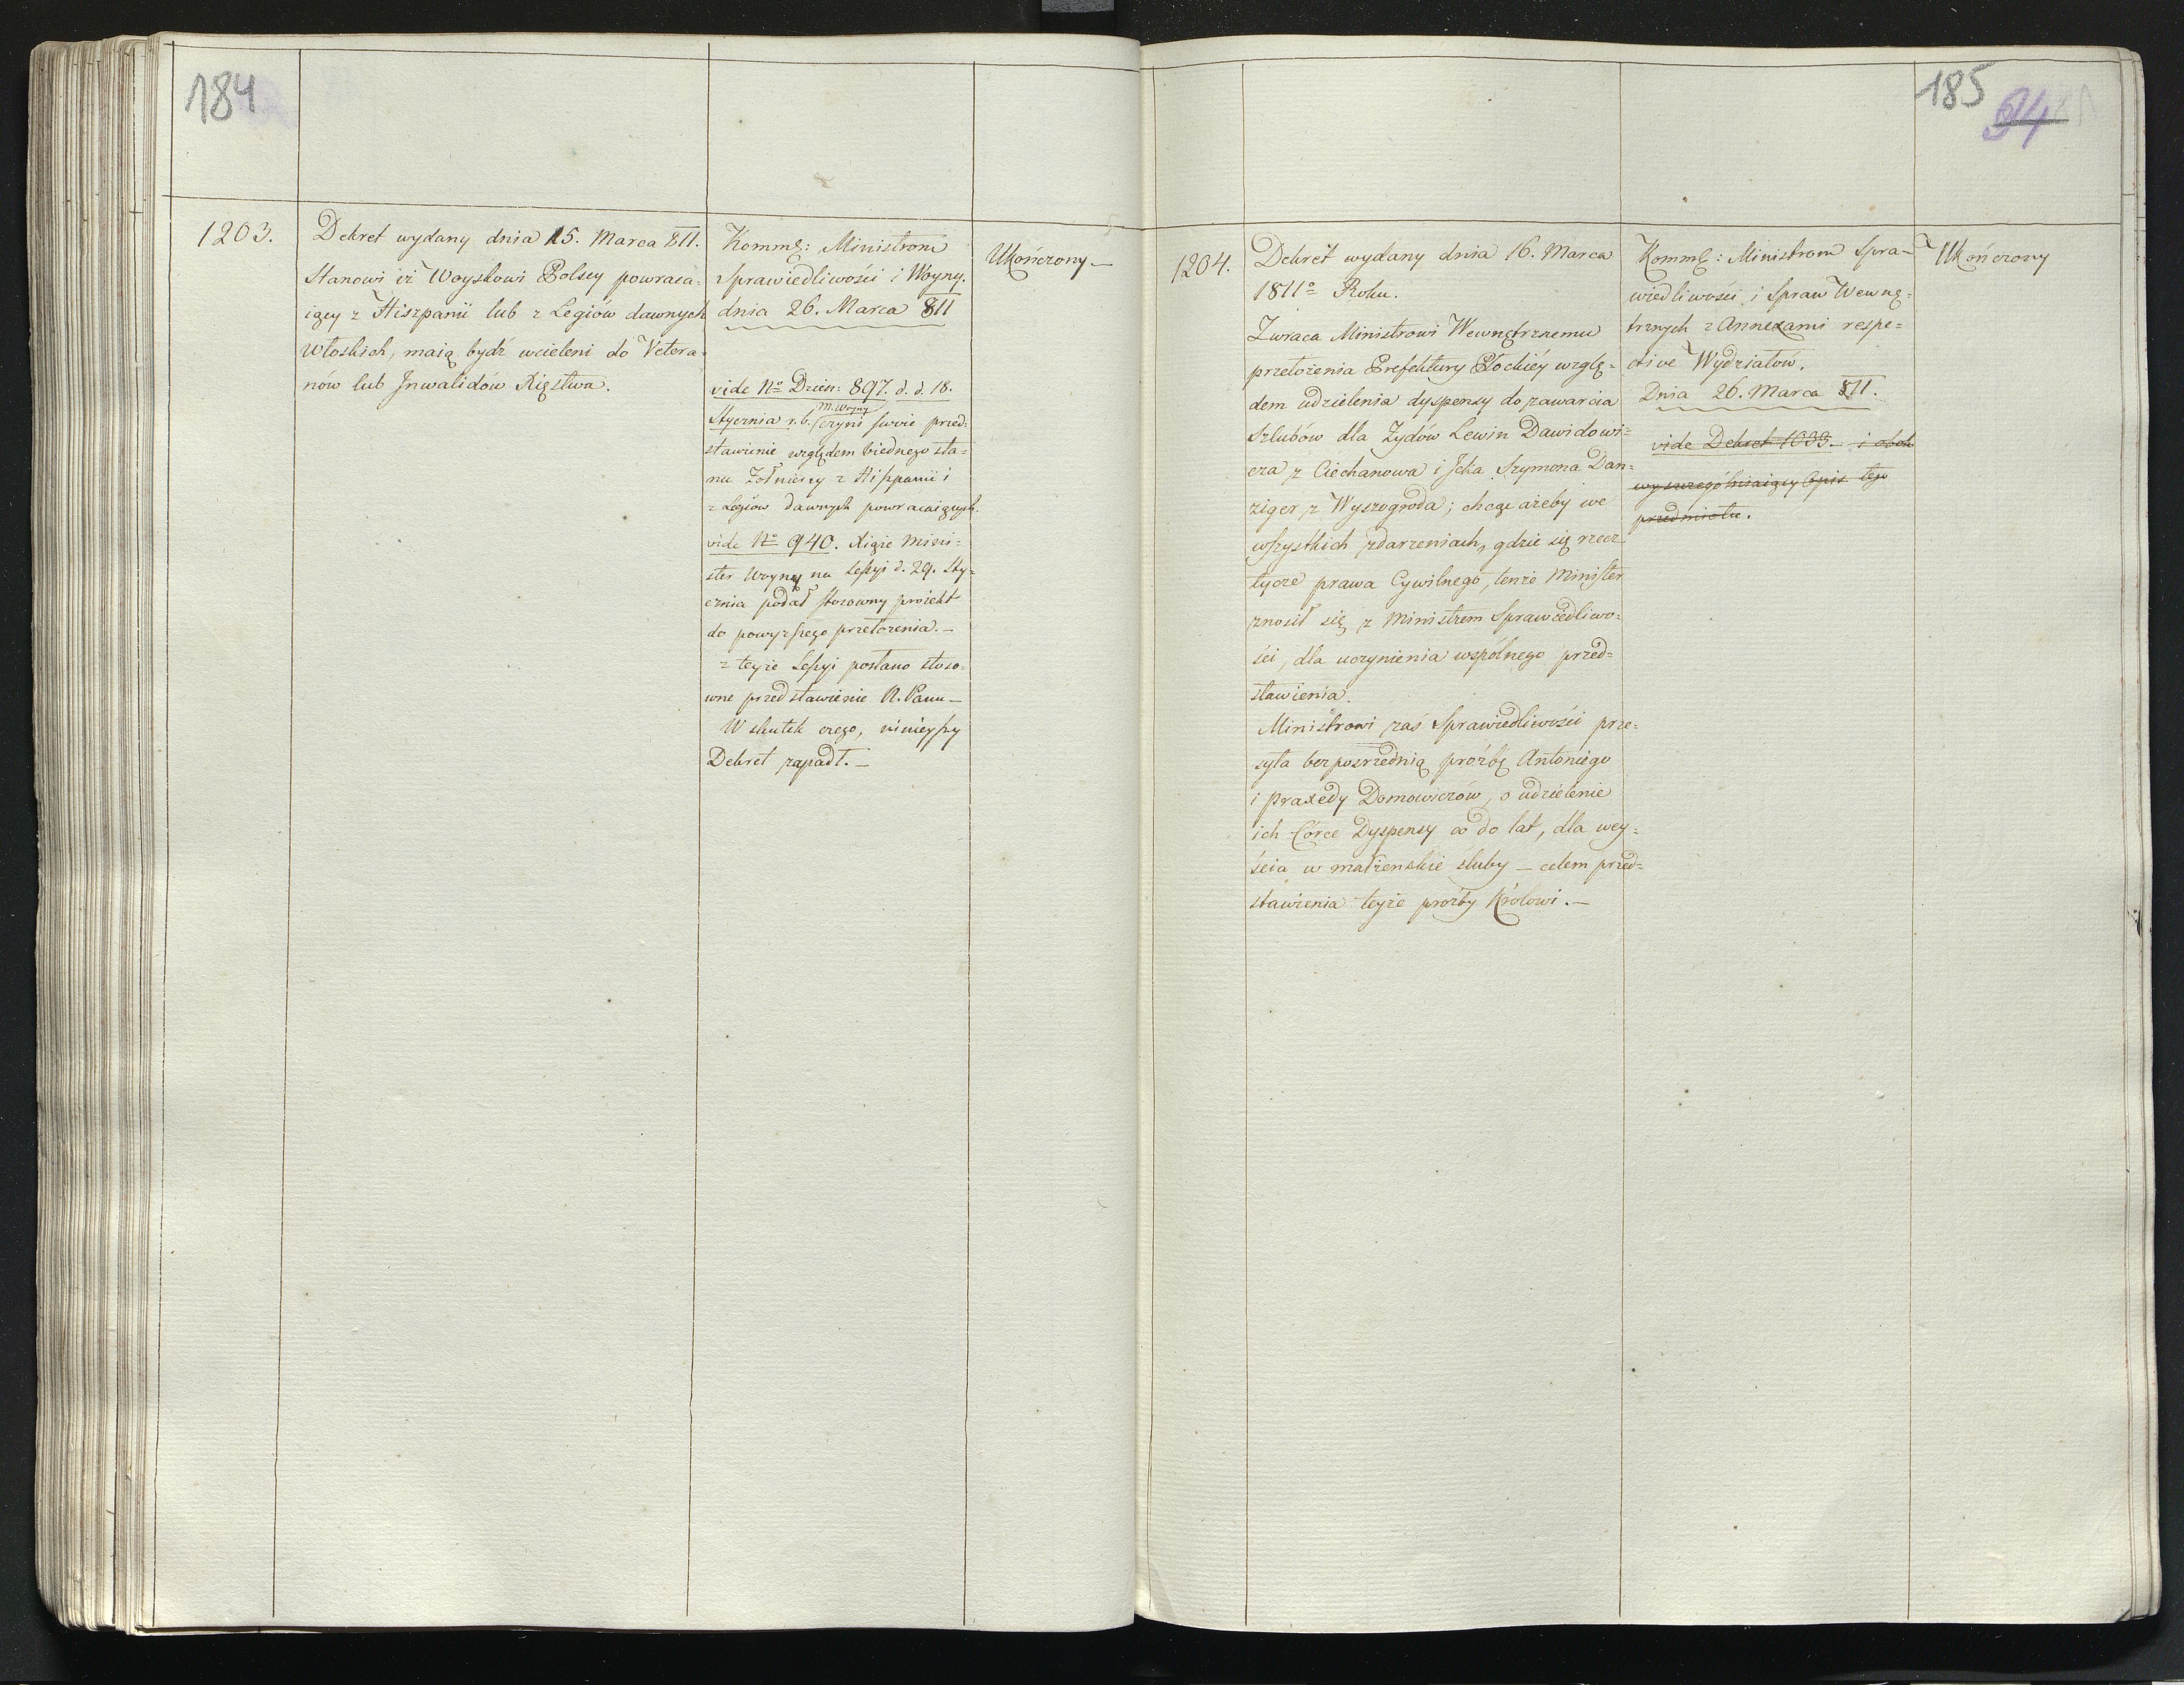 184
1203.
Dekret wydany dnia 15. Marca 811.
Stanowi iż Woyskowi Polscy powraca-
iący z Hiszpanii lub z Legiów dawnych
Włoskich, maią bydź wcieleni do Vetera-
nów lub Inwalidów Xięstwa.
Kommę: Ministrom
Sprawiedliwości i Woyny.
dnia 26. Marca 811
vide No Dzien: 897. d. d. 18.
M. Woyny
Stycznia r.b. czyni swoie przed-
stawienie względem biednego sta-
nu Żołnierzy z Hiszpanii i
z Legiów dawnych powracaiących.
vide No 940. Xiąże Mini-
ster Woyny na Sessyi d. 29. Sty-
cznia podał stosowny proiekt
do powyższego przełożenia.—
z teyże Sessyi posłano stoso-
wne przedstawienie N. Panu—
W skutek czego, ninieyszy
Dekret zapadł.—
Ukończony—
185
94
1204.
Dekret wydany dnia 16. Marca
1811o Roku.
Zwraca Ministrowi Wewnętrznemu
przełożenia Prefektury Płockiéy wzglę-
dem udzielenia dyspensy do zawarcia
Szlubów dla Żydów Lewin Dawidowi-
cza z Ciechanowa i Icka Szymona Dan-
ziger z Wyszogroda; chcąc ażeby we
wszystkich zdarzeniach, gdzie się rzecz
tycze prawa Cywilnego, tenże Minister
znosił się z Ministrem Sprawiedliwo-
ści, dla uczynienia wspólnego przed-
stawienia.
Ministrowi zaś Sprawiedliwości prze-
syła bezpośrzednią proźbę Antoniego
i Praxedy Domowiczów, o udzielenie
ich Córce Dyspensy co do lat, dla wey-
ścia w małżenskie śluby — celem przed-
stawienia teyże proźby Królowi.—
Kommę: Ministrom Spra-
wiedliwości i Spraw Wewnę-
trznych z Annexami respe-
ctive Wydziałów.
Dnia 26. Marca 811.
vide Dekret 1033. i obok
wyszczególniaiący Opis tego
przedmiotu.
Ukończony